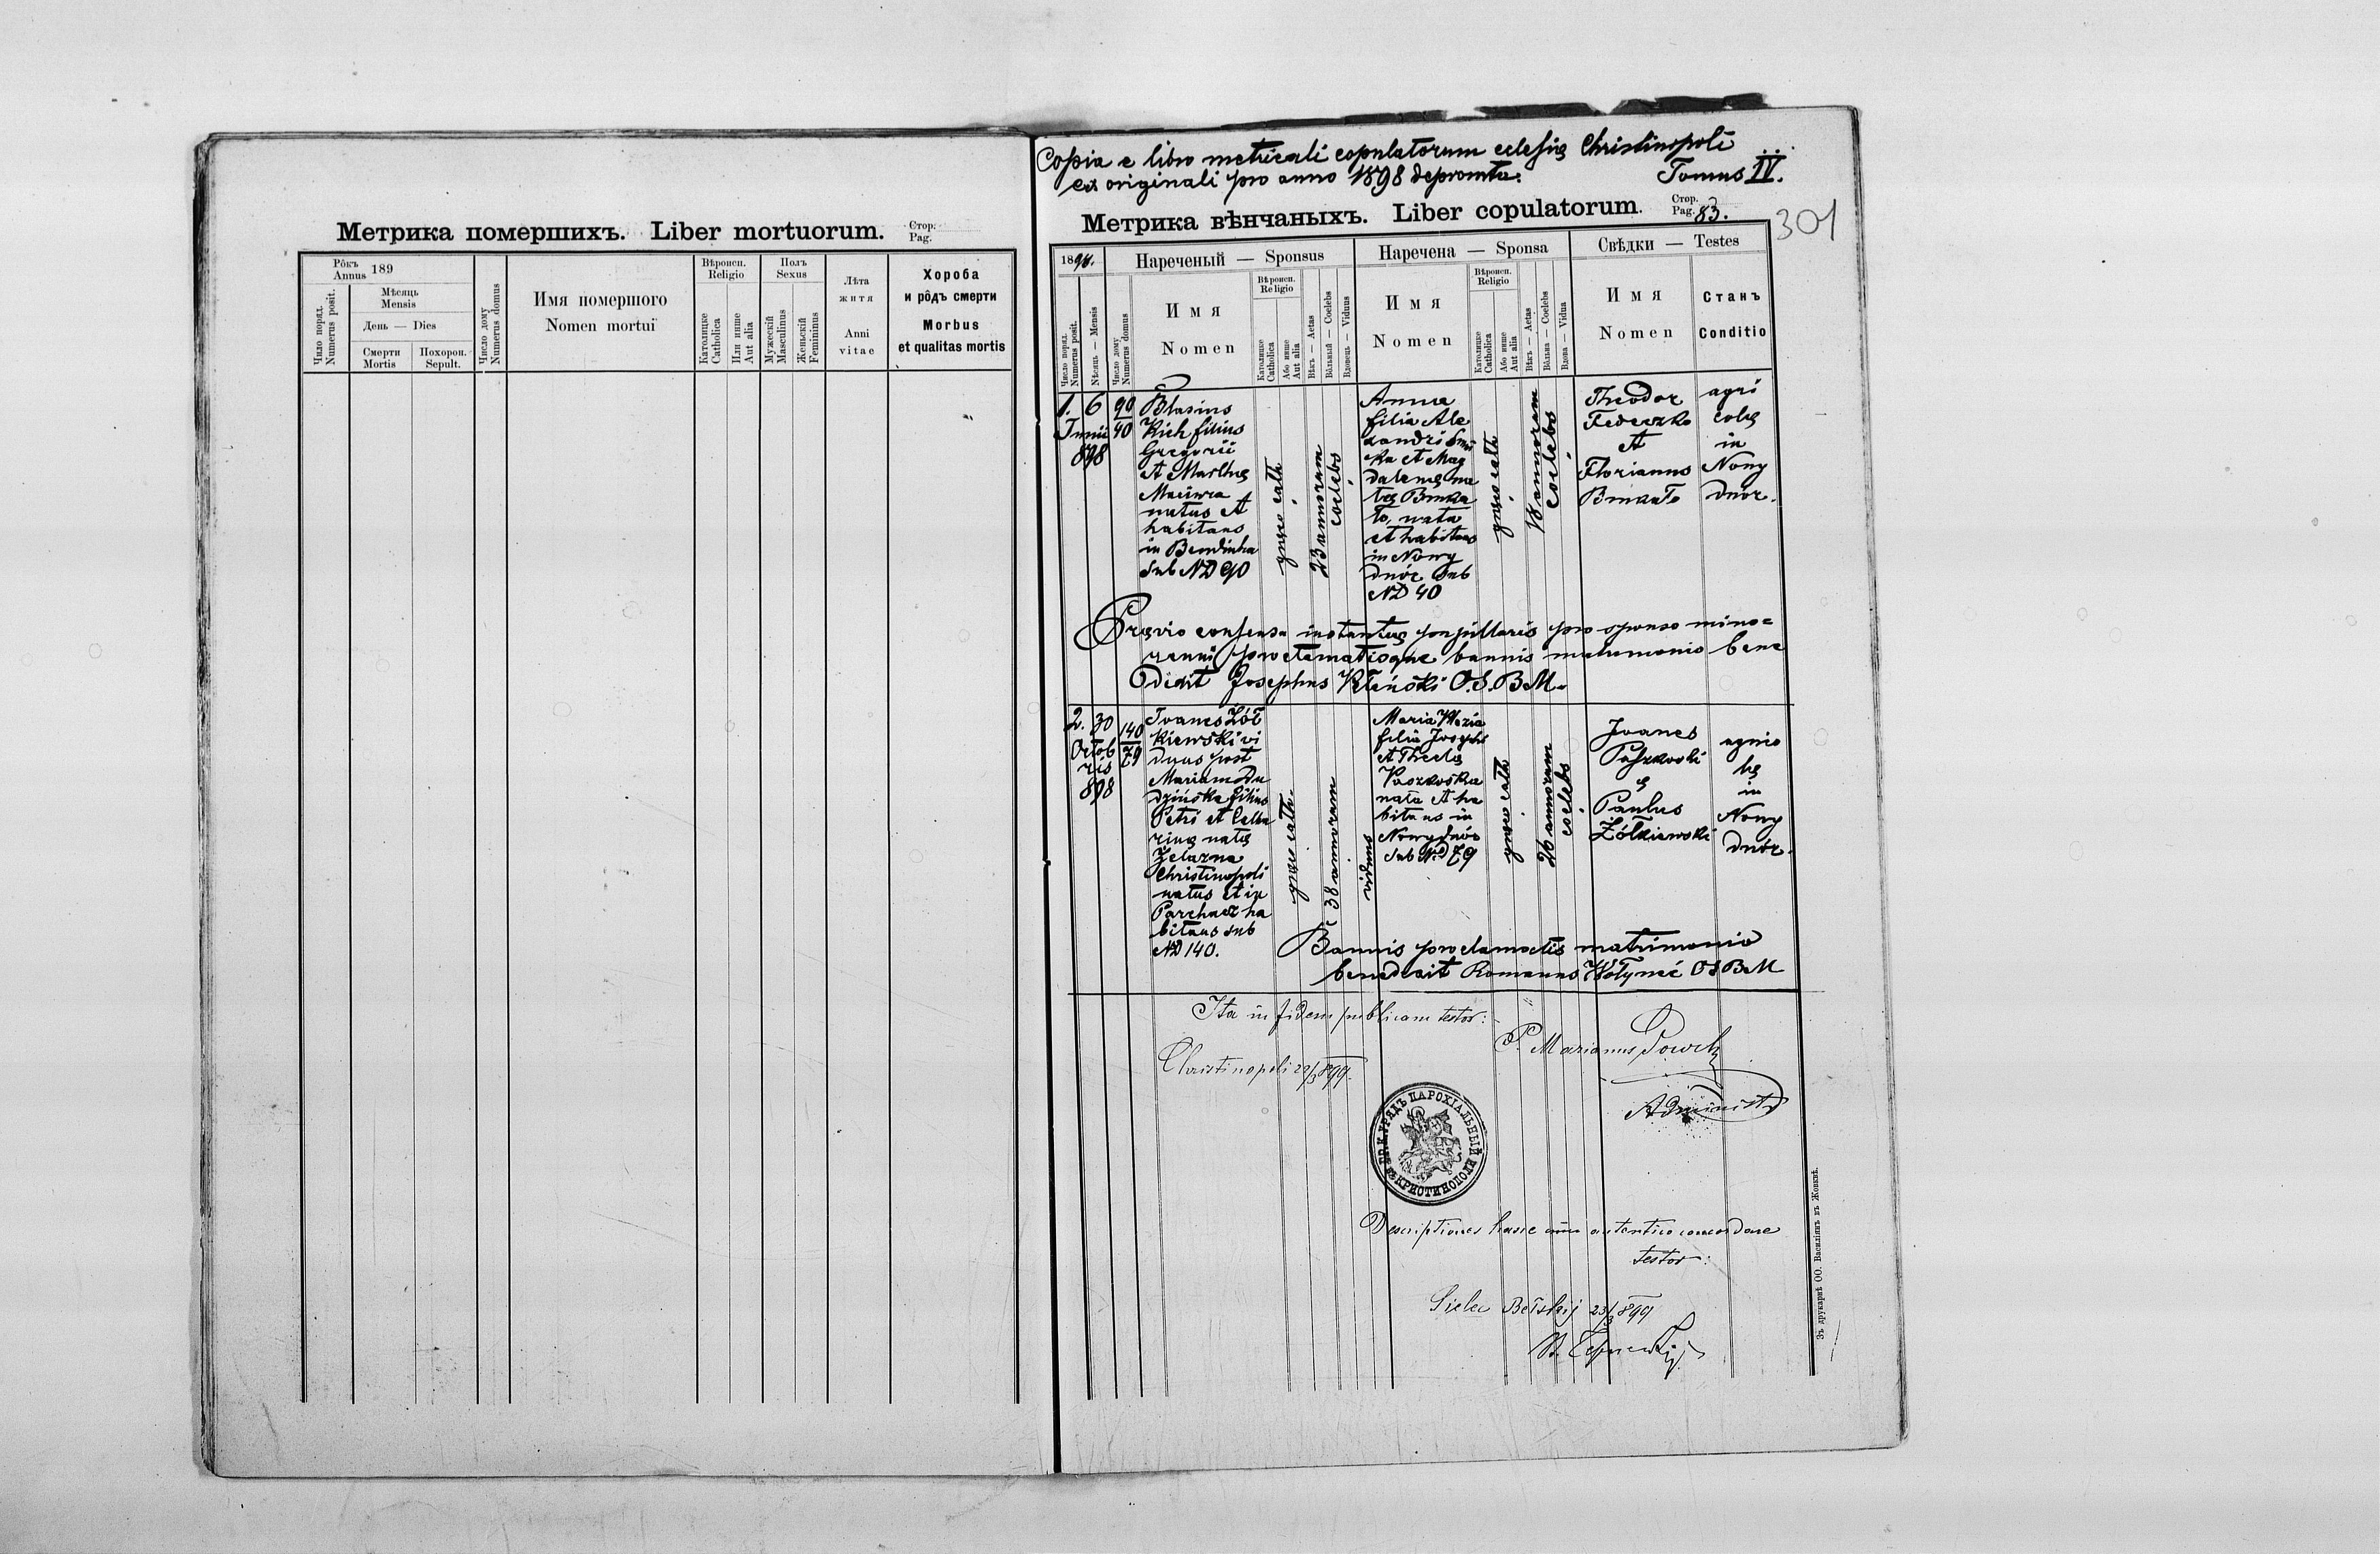 Метрика помершихъ. Liber mortuorum.
Стор.
Pag.
Рôкъ
Annus 189
Мѣсяць
Mensis
День — Dies
Смерти
Mortis
Похорон.
Sepult.
Число поряд.
Numerus posit.
Число дому
Numerus domus
Имя помершого
Nomen mortui
Вѣроисп.
Religio
Католицке
Catholica
Или инше
Aut alia
Полъ
Sexus
Мужескій
Masculinus
Женьскій
Femininus
Лѣта
житя
Anni
vitae
Хороба
и рôдъ смерти
Morbus
et qualitas mortis
Copia e libro metricali copulatorum eclesię Christinopoli
ex originali pro anno 1898 depromta.
Tomus IV.
Метрика вѣнчаныхъ. Liber copulatorum.
Стор.
Pag. 83.
301
1898.
Нареченый — Sponsus
Наречена — Sponsa
Свѣдки — Testes
Число поряд.
Numerus posit.
Мѣсяць — Mensis
Число дому
Numerus domus
Имя
Nomen
Вѣроисп.
Religio
Католицке
Catholica
Або инше
Aut alia
Вѣкъ — Aetas
Вôльный — Coelebs
Вдовець — Viduus
Имя
Nomen
Вѣроисп.
Religio
Католицке
Catholica
Або инше
Aut alia
Вѣкъ — Aetas
Вôльна — Coelebs
Вдова — Vidua
Имя
Nomen
Станъ
Conditio
1. 6
Junii
898
90
40
Blasius
Kich filius
Gregorii
et Marthę
Maciura
natus et
habitans
in Bendiuha
sub ND 90
gręco cath.
23 annorum
coelebs
Anna
filia Ale
xandri
ka et Mag
dalenę na
tęs Bunka
to, nata
et habitans
in Nowy
dwór sub
ND 40
gręco cath.
18 annorum
coelebs
Theodor
Fedeczko
et
Florianus
agri
colę
in
Nowy
dwór.
Prævio consensu instantię pupillaris pro sponso mino=
renni proclamatisque bannis matrimonio bene
dixit Josephus O.S.B.M.
2. 30
Octob
ris
898
140
79
Ivanes Żół
kiewski vi
duus post
Mariam Du
dzińska filius
Petri et Catha
rinę natę
Żelazna
Christinopoli
natus et in
Parchacz ha
bitans sub
ND 140.
gręco cath.
38 annorum
viduus
Maria
filia Josephi
et Theclę
nata et ha
bitans in
Nowydwór
sub ND 79
gręco cath.
26 annorum
coelebs
Ivanes
Paszkowski
&
Paulus
Żółkiewski
agrico
lę
in
Nowy
dwór.
Bannis proclamatis matrimonio
benedixit Romanus OSBM
Ita in fidem publicam testor:
Christinopoli 22/3 899.
P. Marianus
Administr
ГР. К. УРЯДЪ ПАРОХІАЛЬНЫЙ ВЪ КРИСТИНОПОЛИ
Descriptiones hasce cum autentico concordare
testor:
Sielec Bełskij 23/3 899
Зъ друкарнѣ ОО. Василіянъ въ Жовквѣ.